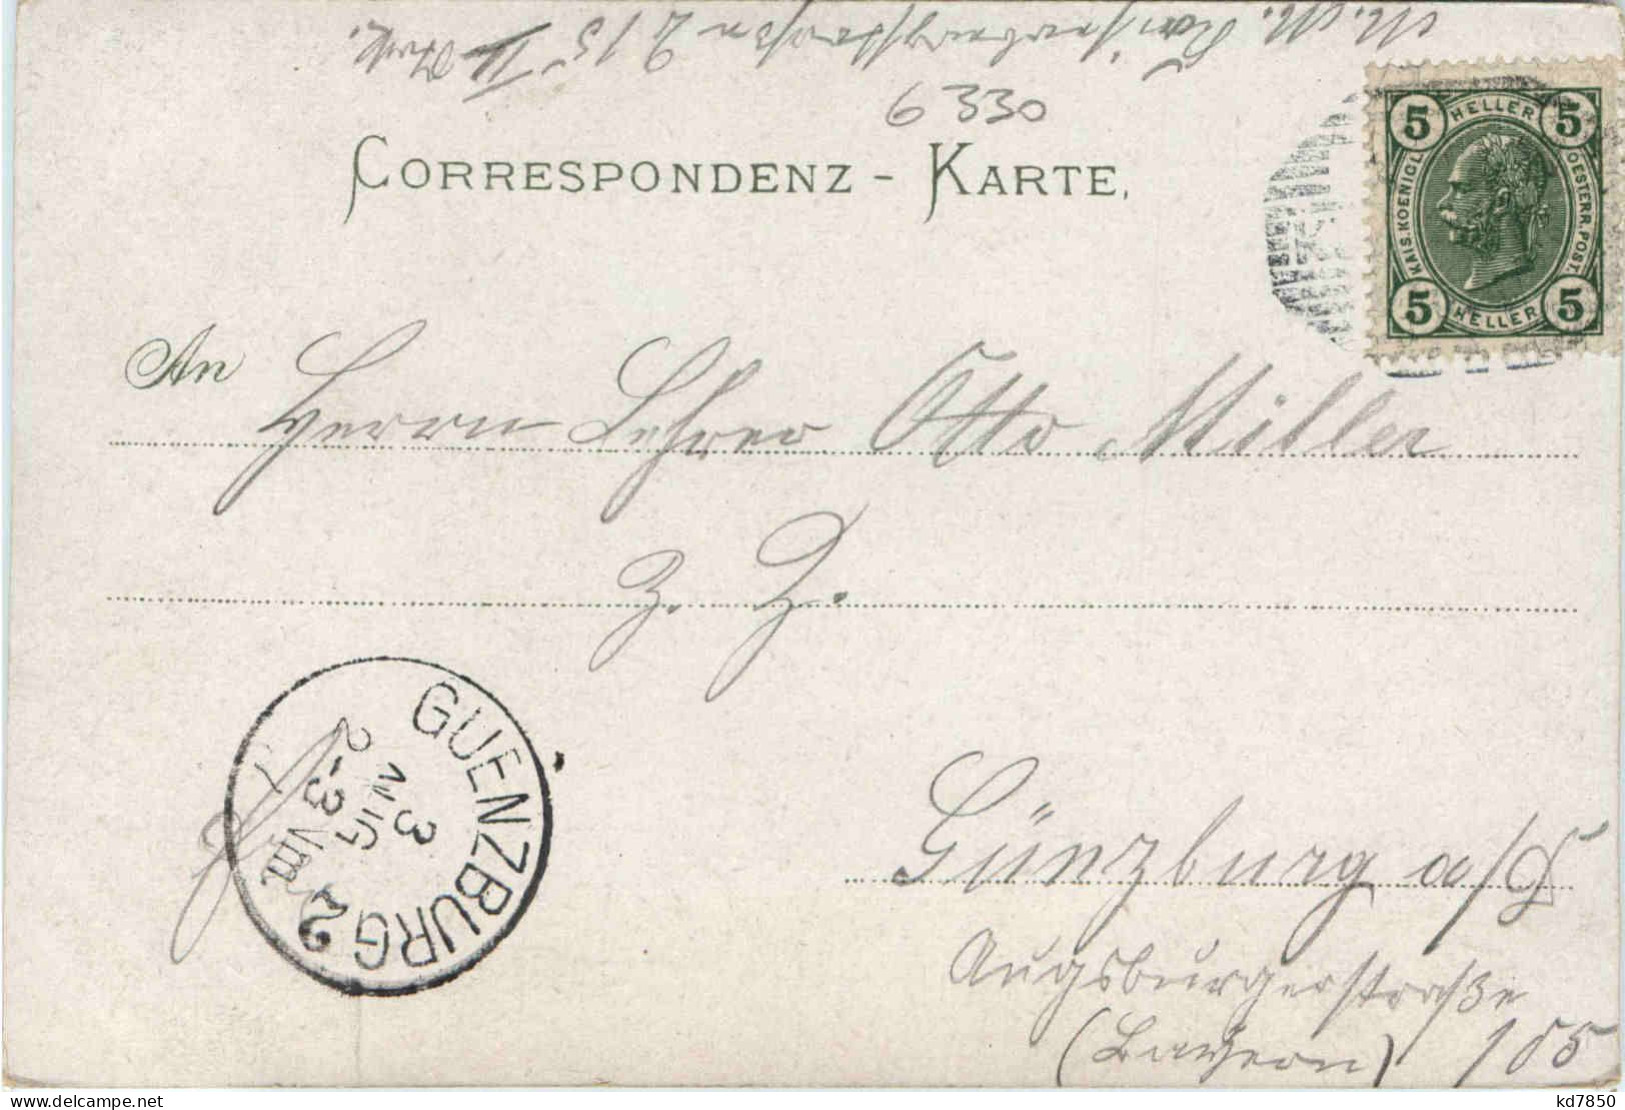 6330
CORRESPONDENZ - KARTE.
5 HELLER 5
KAIS. KOENIGL. OESTERR. POST.
5 HELLER 5
An Herrn Lehrer Otto Miller
z. Z.
GUENZBURG 2
3
2-3 Vm.
Günzburg a/D
Augsburgerstraße
(Bayern) 105
kd7850